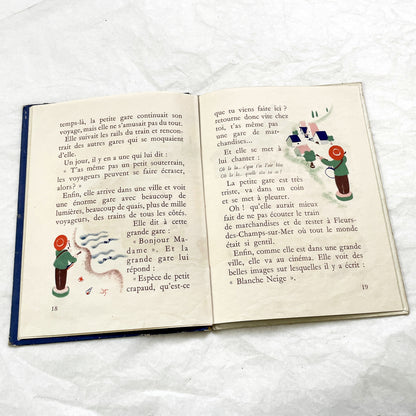 temps-là, la petite gare continuait son
voyage, mais elle ne s'amusait pas du tout.
Elle suivait les rails du train et rencon-
trait des autres gares qui se moquaient
d'elle.
Un jour, il y en a une qui lui dit :
« T'as même pas un petit souterrain,
les voyageurs peuvent se faire écraser,
alors? »
Enfin, elle arrive dans une ville et voit
une énorme gare avec beaucoup de
lumières, beaucoup de quais, plus de mille
voyageurs, des trains de tous les côtés.
Elle dit à cette
grande gare :
« Bonjour Ma-
dame ». Et la
grande gare lui
répond :
« Espèce de petit
crapaud, qu'est-ce
18
que tu viens faire ici ?
retourne donc vite chez
toi, t'as même pas
une gare de mar-
chandises...
Et elle se met à
lui chanter :
La petite gare est très
triste, va dans un coin
et se met à pleurer.
Oh ! qu'elle aurait mieux
fait de ne pas écouter le train
de marchandises et de rester à Fleurs-
des-Champs-sur-Mer où tout le monde
était si gentil.
Enfin, comme elle est dans une grande
ville, elle va au cinéma. Elle voit des
belles images sur lesquelles il y a écrit :
« Blanche Neige ».
19